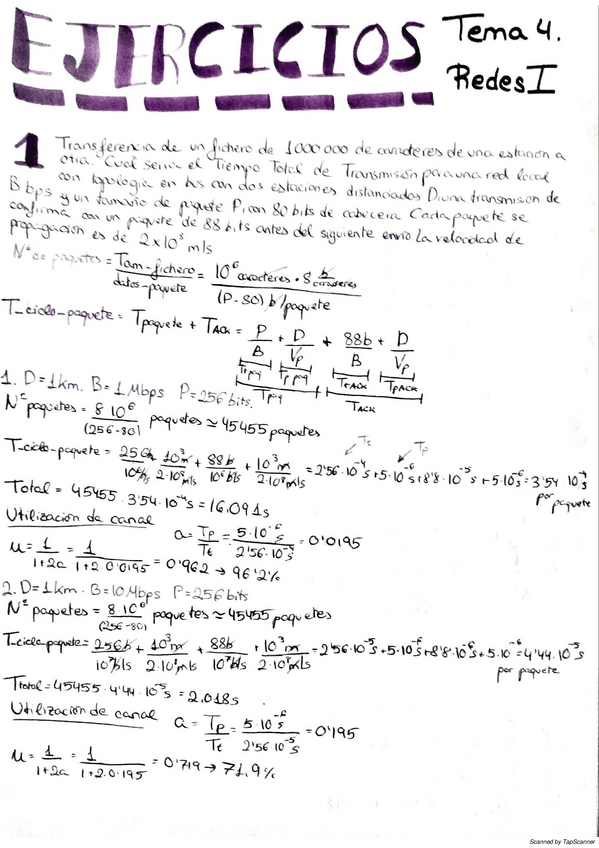 EJERCICIOS Tema 4.
Redes I
1 Transferencia de un fichero de 1000 000 de caracteres de una estación a
otra. Cual seria el Tiempo Total de Transmisión para una red local
con topología en bus con dos estaciones distanciadas D, una transmisión de
B bps y un tamaño de paquete P, con 80 bits de cabecera. Cada paquete se
confirma con un paquete de 88 bits antes del siguiente envío. La velocidad de
propagación es de 2x10⁸ m/s
Nº de paquetes = Tam-fichero / datos-paquete = 10⁶ caracteres · 8 b/caracteres / (P-80) b/paquete
T_ciclo-paquete = Tpaquete + TACK = P/B + D/Vp + 88b/B + D/Vp
Tpq TACK
1. D=1km. B=1Mbps P=256 bits.
Nº paquetes = 8·10⁶/(256-80) paquetes ≃ 45455 paquetes
Tt Tp
T-ciclo-paquete = 256b/10⁶b/s + 10³m/2·10⁸m/s + 88b/10⁶b/s + 10³m/2·10⁸m/s = 2'56·10⁻⁴s + 5·10⁻⁶s + 8'8·10⁻⁵s + 5·10⁻⁶s = 3'54 10⁻⁴s
por paquete
Total = 45455 · 3'54·10⁻⁴s = 16.091s
Utilización de canal a = Tp/Tt = 5·10⁻⁶s / 2'56·10⁻⁴s = 0'0195
u = 1/1+2a = 1/1+2·0'0195 = 0'962 → 96'2%
2. D=1km. B=10Mbps P=256bits
Nº paquetes = 8·10⁶/(256-80) paquetes ≃ 45455 paquetes
T-ciclo-paquete = 256b/10⁷b/s + 10³m/2·10⁸m/s + 88b/10⁷b/s + 10³m/2·10⁸m/s = 2'56·10⁻⁵s + 5·10⁻⁶s + 8'8·10⁻⁶s + 5·10⁻⁶ = 4'44·10⁻⁵s
por paquete
Ttotal = 45455 · 4'44·10⁻⁵s = 2.018s
Utilización de canal a = Tp/Tt = 5·10⁻⁶s / 2'56·10⁻⁵s = 0'195
u = 1/1+2a = 1/1+2·0.195 = 0'719 → 71,9%
Scanned by TapScanner